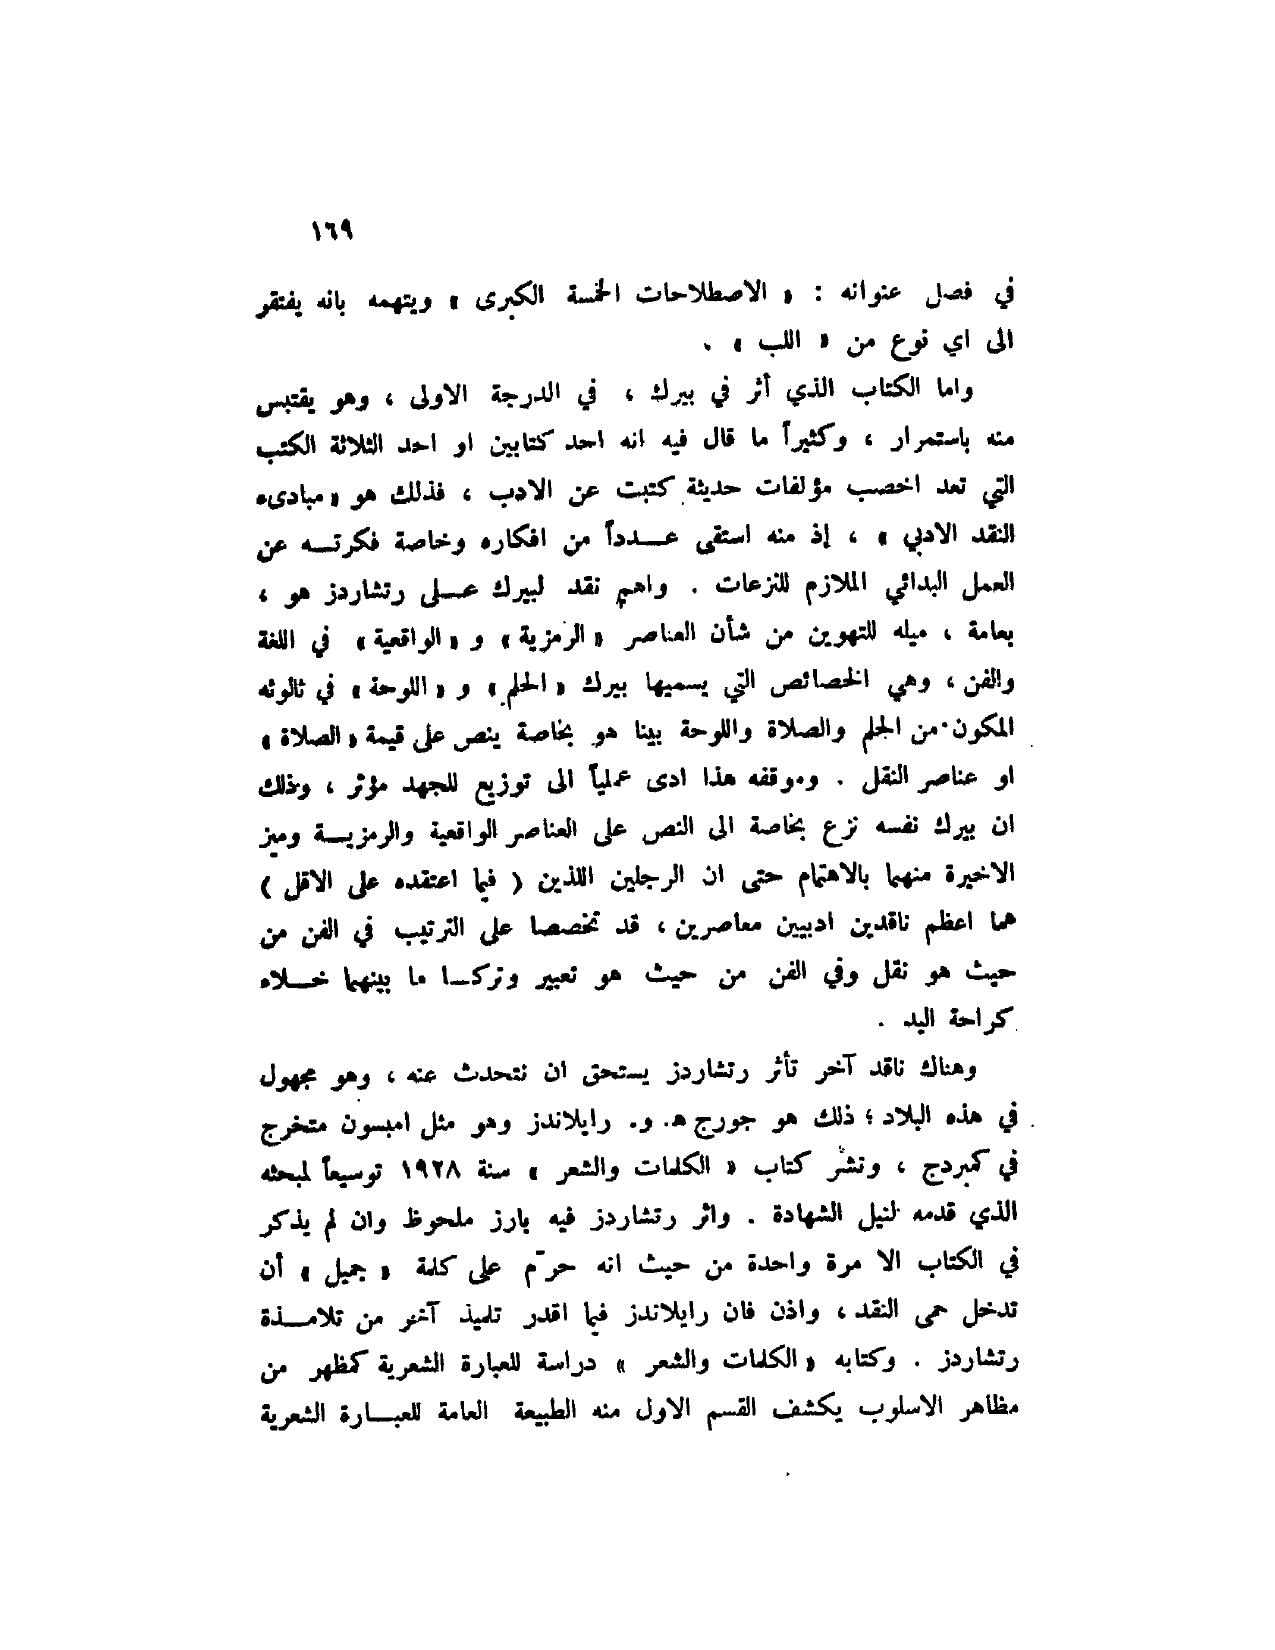 ١٦٩
في فصل عنوانه : « الاصطلاحات الخمسة الكبرى » ويتهمه بانه يفتقر
الى اي نوع من « اللب » .
واما الكتاب الذي أثر في بيرك ، في الدرجة الاولى ، وهو يقتبس
منه باستمرار ، وكثيراً ما قال فيه انه احد كتابين او احد الثلاثة الكتب
التي تعد اخصب مؤلفات حديثة كتبت عن الادب ، فذلك هو « مبادىء
النقد الادبي » ، إذ منه استقى عدداً من افكاره وخاصة فكرته عن
العمل البدائي الملازم للنزعات . واهم نقد لبيرك على رتشاردز هو ،
بعامة ، ميله للتهوين من شأن العناصر « الرمزية » و « الواقعية » في اللغة
والفن ، وهي الخصائص التي يسميها بيرك « الحلم » و « اللوحة » في ثالوثه
المكون من الحلم والصلاة واللوحة بينا هو بخاصة ينص على قيمة « الصلاة »
او عناصر النقل . وموقفه هذا ادى عملياً الى توزيع للجهد مؤثر ، وذلك
ان بيرك نفسه نزع بخاصة الى النص على العناصر الواقعية والرمزية وميز
الاخيرة منهما بالاهتمام حتى ان الرجلين اللذين ( فيما اعتقده على الاقل )
هما اعظم ناقدين ادبيين معاصرين ، قد تخصصا على الترتيب في الفن من
حيث هو نقل وفي الفن من حيث هو تعبير وتركا ما بينهما خلاء
كراحة اليد .
وهناك ناقد آخر تأثر رتشاردز يستحق ان نتحدث عنه ، وهو مجهول
في هذه البلاد ؛ ذلك هو جورج ه. و. رايلاندز وهو مثل امبسون متخرج
في كمبردج ، ونشر كتاب « الكلمات والشعر » سنة ١٩٢٨ توسيعاً لمبحثه
الذي قدمه لنيل الشهادة . واثر رتشاردز فيه بارز ملحوظ وان لم يذكر
في الكتاب الا مرة واحدة من حيث انه حرّم على كلمة « جميل » أن
تدخل حمى النقد ، واذن فان رايلاندز فيما اقدر تلميذ آخر من تلامذة
رتشاردز . وكتابه « الكلمات والشعر » دراسة للعبارة الشعرية كمظهر من
مظاهر الاسلوب يكشف القسم الاول منه الطبيعة العامة للعبارة الشعرية